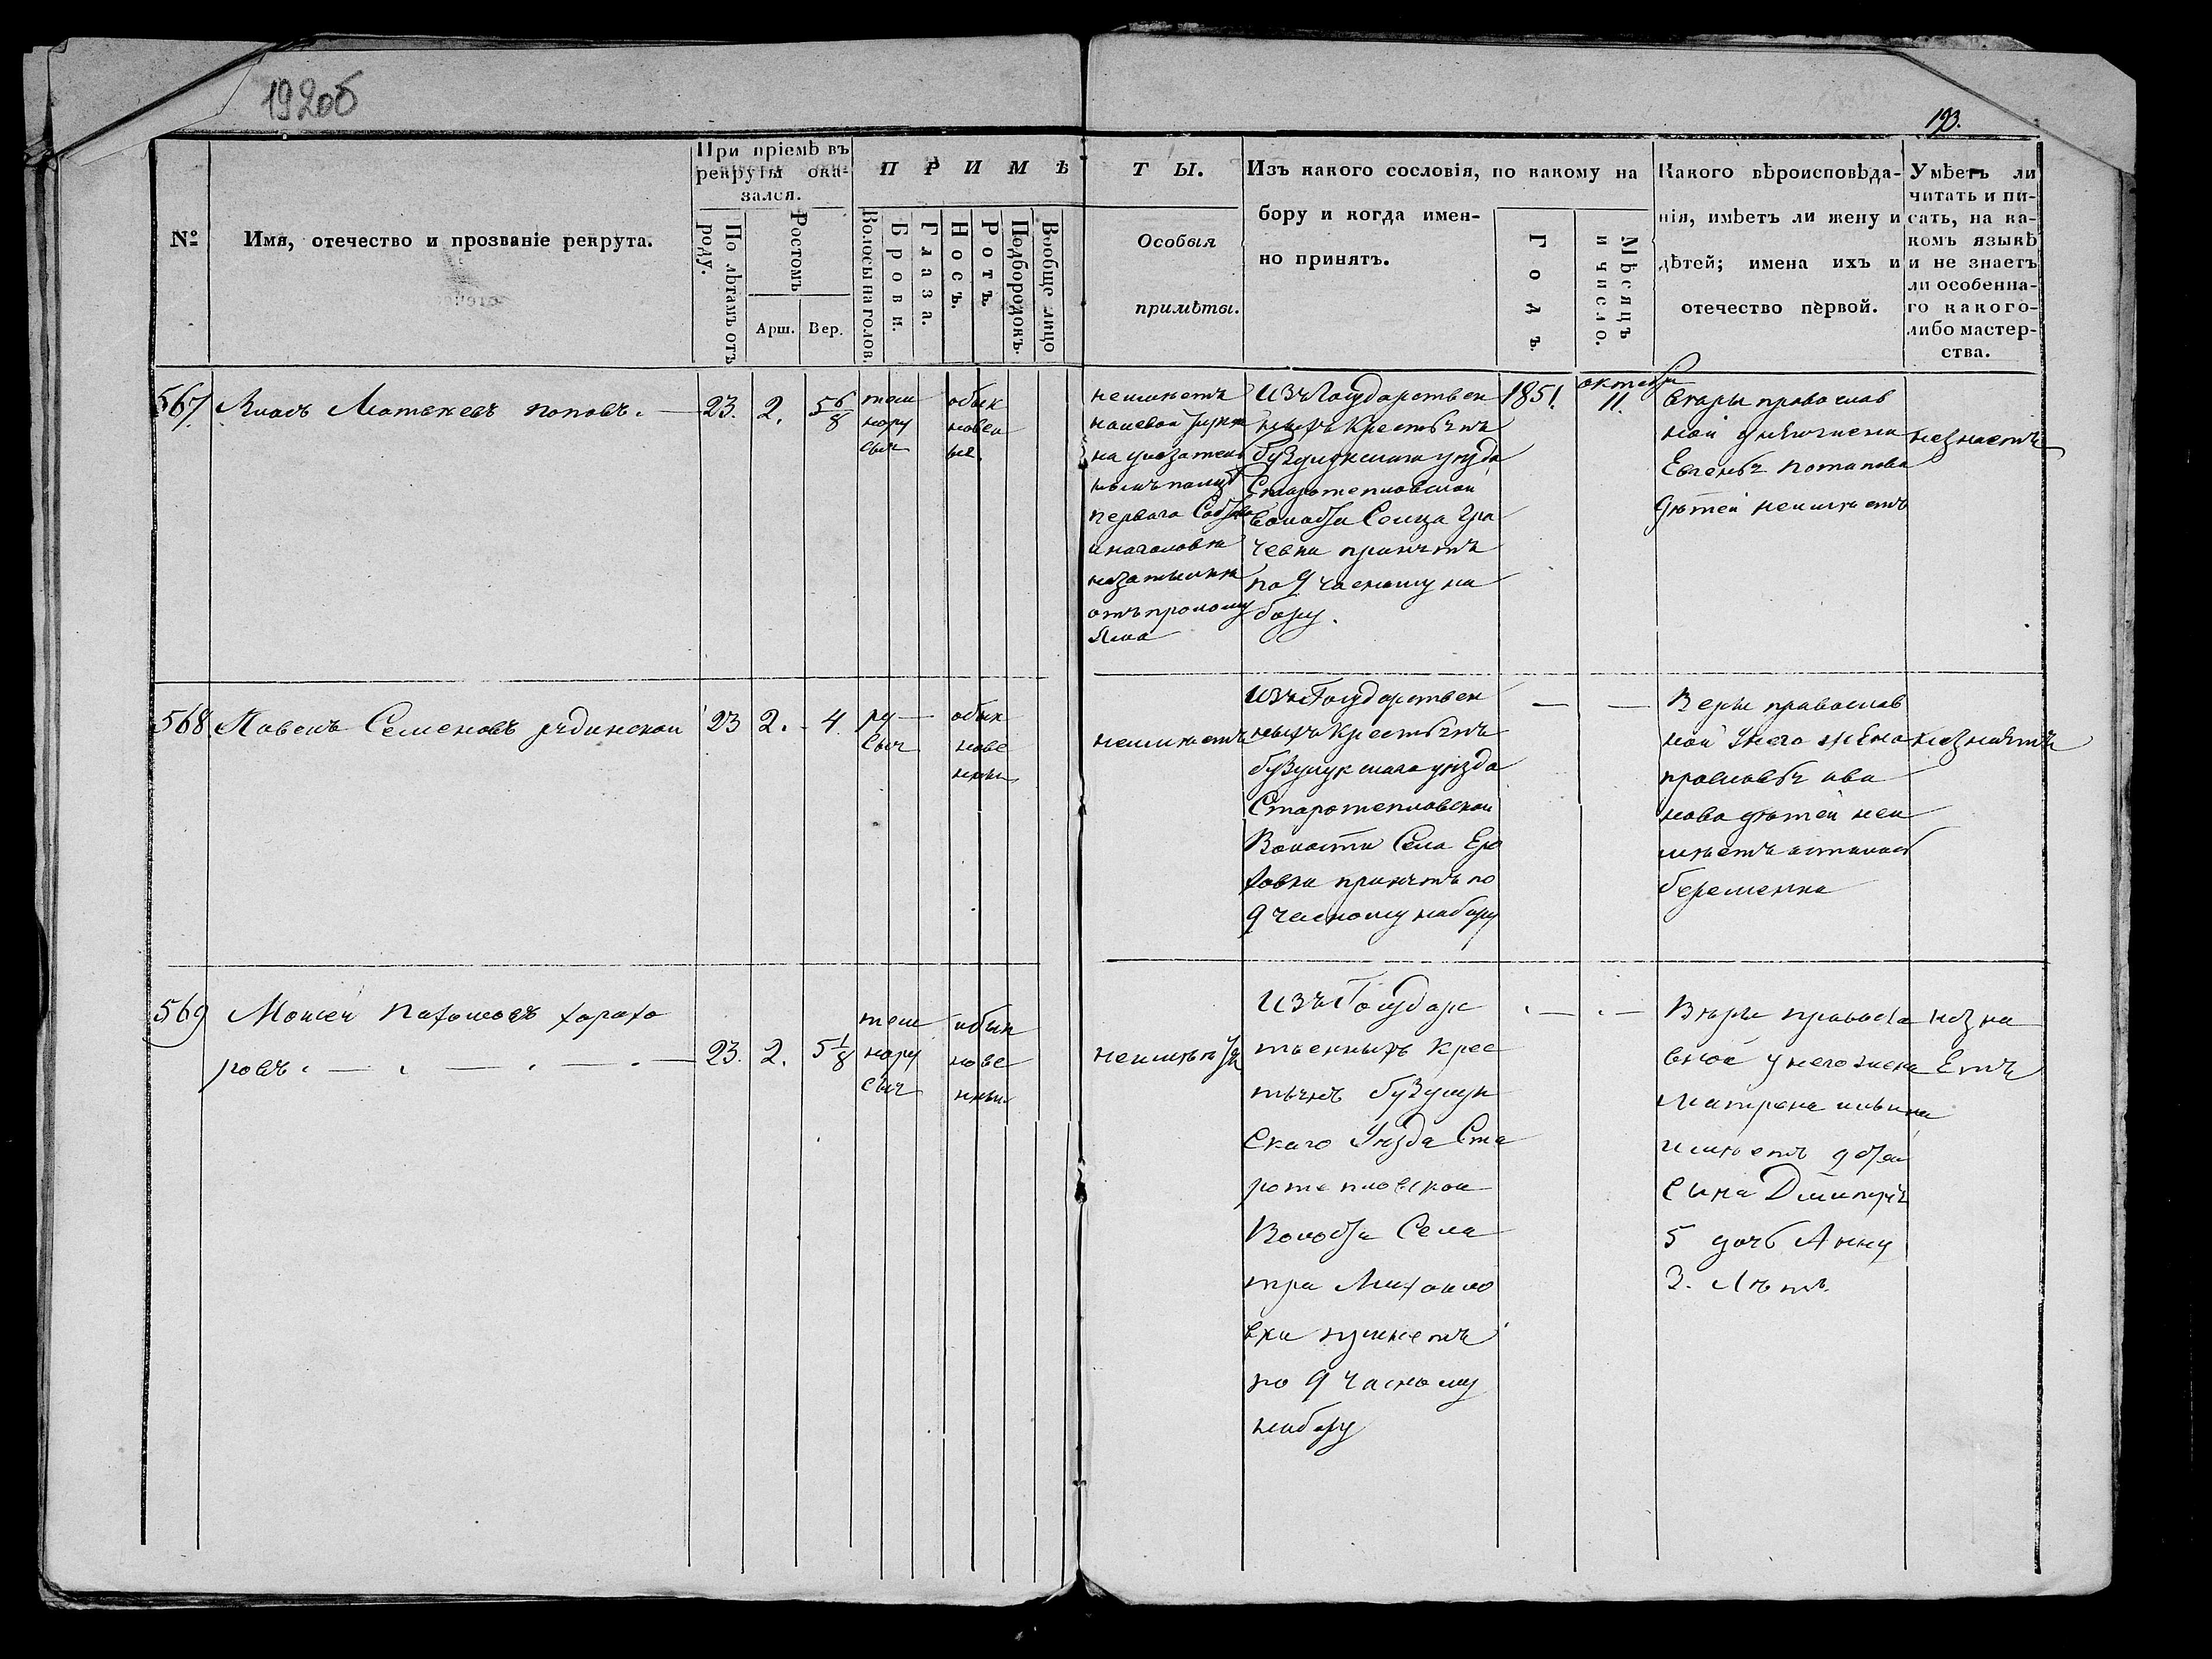 192об
193.
№
Имя, отечество и прозваніе рекрута.
При пріемѣ въ
рекруты ока-
зался.
По лѣтамъ отъ
роду.
Ростомъ
Арш.
Вер.
ПРИМѢ
Волосы на голов.
Брови.
Глаза.
Носъ.
Ротъ.
Подбородокъ.
Вообще лицо
ТЫ.
Особыя
примѣты.
Изъ какого сословія, по какому на
бору и когда имен-
но принятъ.
Годъ.
Мѣсяцъ
и число.
Какого вѣроисповѣда-
нія, имѣетъ ли жену и
дѣтей; имена ихъ и
отечество первой.
Умѣетъ ли
читать и пи-
сать, на ка-
комъ языкѣ
и не знаетъ
ли особенна-
го какого-
либо мастер-
ства.
567. Матвеевъ поповъ.
23.
2.
5 6/8
тем
нору
сыя
обык
новен
ые.
на указатель
перваго
отъ
Изъ Государствен
ныхъ Крестьянъ
бузулукскаго уезда
Старотепловской
Волости Селца Гра
чевки принятъ
по 9 часному на
бору.
1851.
октября
11.
православ
ной
Потапова
дѣтей неимѣетъ
незнаетъ
568. Павелъ Семеновъ
23
2.
4
ру
сыя
обык
нове
нны
неимѣетъ
Изъ Государствен
ныхъ Крестьянъ
бузулукскаго уезда
Старотепловской
Волости Села Еро
ховки принятъ по
9 часному набору
Веры православ
ной Унего жена
ива
нова дѣтей неи
мѣетъ осталась
беременна
незнаетъ
569 Моисей Пахомовъ харахо
ровъ.
23.
2.
5 1/8
тем
нору
сыя
обык
нове
нны
неимѣетъ
Изъ Государс
твенныхъ Крес
тьянъ бузулук
Скаго Уезда Ста
ротепловской
Волости Села
Михайло
вки принетъ
по 9 часному
набору
Веры правосла
вной у него жена
Матрена ильина
имѣетъ детей
Сына Дмитрія
5 дочь Анну
3. Летъ.
незна
Етъ